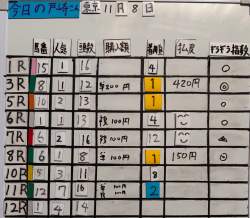 今日の戸崎さん 東京 11月8日
馬番 人気 頭数 購入額 着順 払戻 ドキドキ指数
1R 15 1 16 4 ○
3R 8 1 12 単200円 1 420円 ◎
5R 10 2 13 1 ○
6R 1 1 13 複100円 4 ○
7R 6 2 16 複100円 12
8R 6 1 8 単100円 1 150円 ◎
10R 5 3 11 8
11R 12 7 16 2
12R 1 4 14